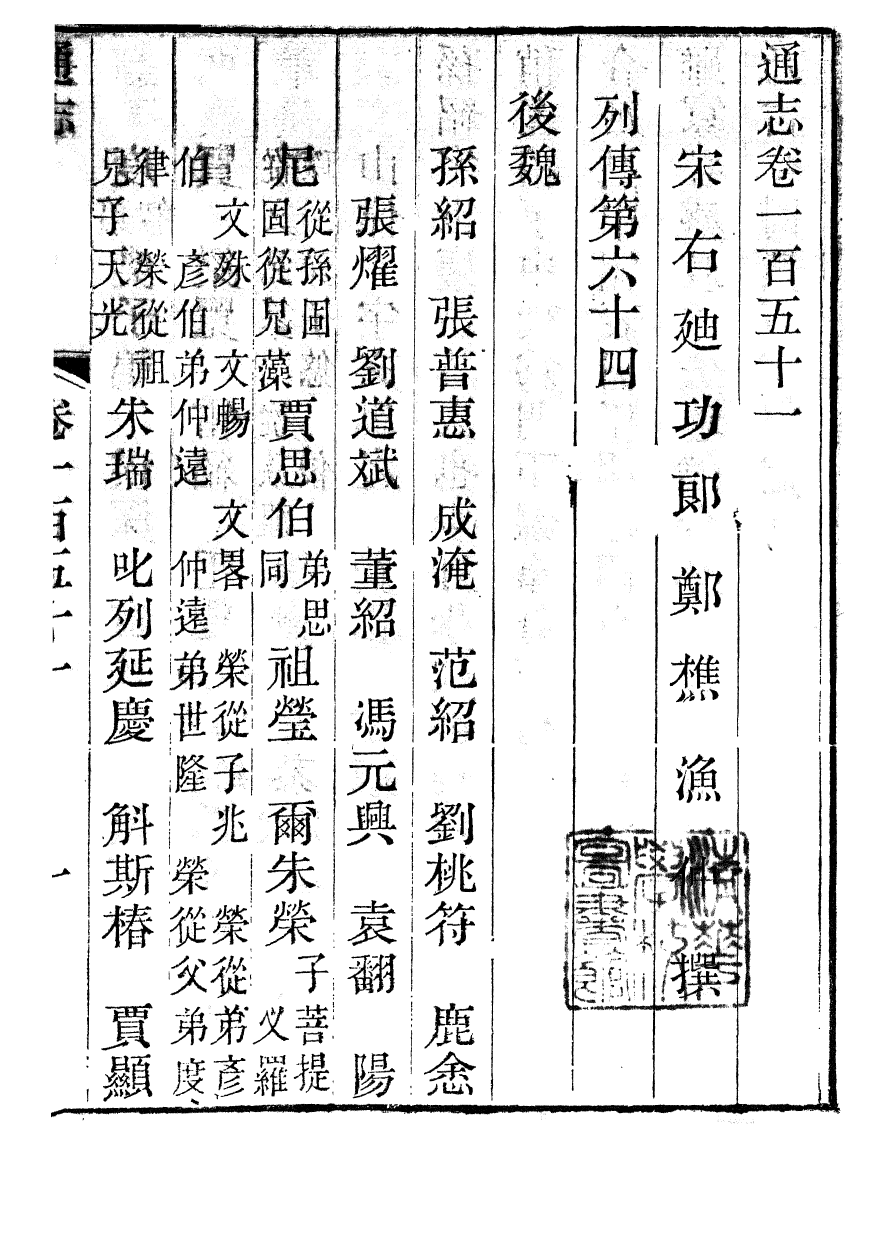 通志卷一百五十一
宋右廸功郎鄭樵漁仲撰
列傳第六十四
後魏
孫紹 張普惠 成淹 范紹 劉桃符 鹿悆
張燿 劉道斌 董紹 馮元興 袁翻 陽
尼 從孫固 固從兄藻 賈思伯 弟思同 祖瑩 爾朱榮 子菩提 乂羅
文殊 文暢 文畧 榮從子兆 榮從弟彥
伯 彥伯弟仲遠 仲遠弟世隆 榮從父弟度
律 榮從祖兄子天光 朱瑞 叱列延慶 斛斯椿 賈顯
通志 卷一百五十一 一